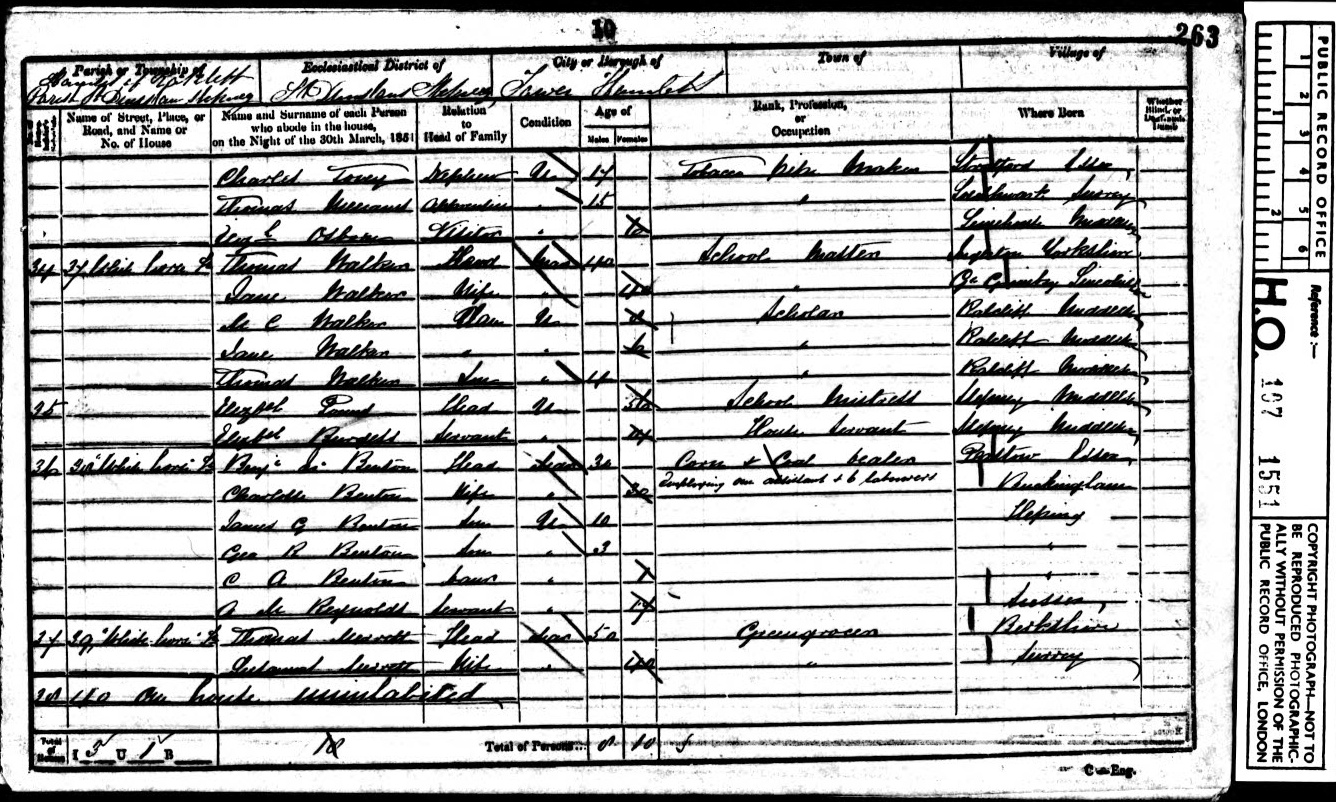 10
263
Parish or Township of
Ecclesiastical District of
City or Borough of
Town of
Village of
Hamlet of Ratcliff
Parish St Dunstan Stepney
St Dunstans Stepney
Tower Hamlets
Name of Street, Place, or Road, and Name or No. of House
Name and Surname of each Person who abode in the house, on the Night of the 30th March, 1851
Relation to Head of Family
Condition
Age of
Males
Females
Rank, Profession, or Occupation
Where Born
Whether Blind, or Deaf-and-Dumb
Charles Tovey Nephew U 17 Tobacco Pipe Maker Stratford Essex
Thomas Apprentice " 15 " Southwark Surrey
Eliz Osborn Visitor " Limehouse Middlesex
34 37 White horse St Thomas Walker Head Mar 40 School Master Yorkshire
Jane Walker Wife " 40 " Gt Grimsby Lincolnshire
M C Walker Daur U Scholar Ratcliff Middlesex
Jane Walker " " 6 " Ratcliff Middlesex
Thomas Walker Son " 4 " Ratcliff Middlesex
35 Elizbh Head U School Mistress Stepney Middlesex
Elizbh Burdett Servant " House Servant Stepney Middlesex
36 White horse St Benj Benton Head Mar 30 Corn & Coal dealer Essex
Employing one assistant & 6 labourers
Charlotte Benton Wife " 30 Buckingham
James G Benton Son U 10 Stepney
Geo R Benton Son " 3 "
C A Benton Daur " 1 "
A M Reynolds Servant " 17 Sussex
37 39 White horse St Thomas Head Mar 50 Greengrocer Berkshire
Wife " 40 " Surrey
38 40 One house uninhabited
Total of Houses I 3 U 1 B
18
Total of Persons... 8 10
C—Eng.
PUBLIC RECORD OFFICE
1 2 3 4 5 6
1 2
Reference :—
H.O. 107 1551
COPYRIGHT PHOTOGRAPH—NOT TO BE REPRODUCED PHOTOGRAPHICALLY WITHOUT PERMISSION OF THE PUBLIC RECORD OFFICE, LONDON